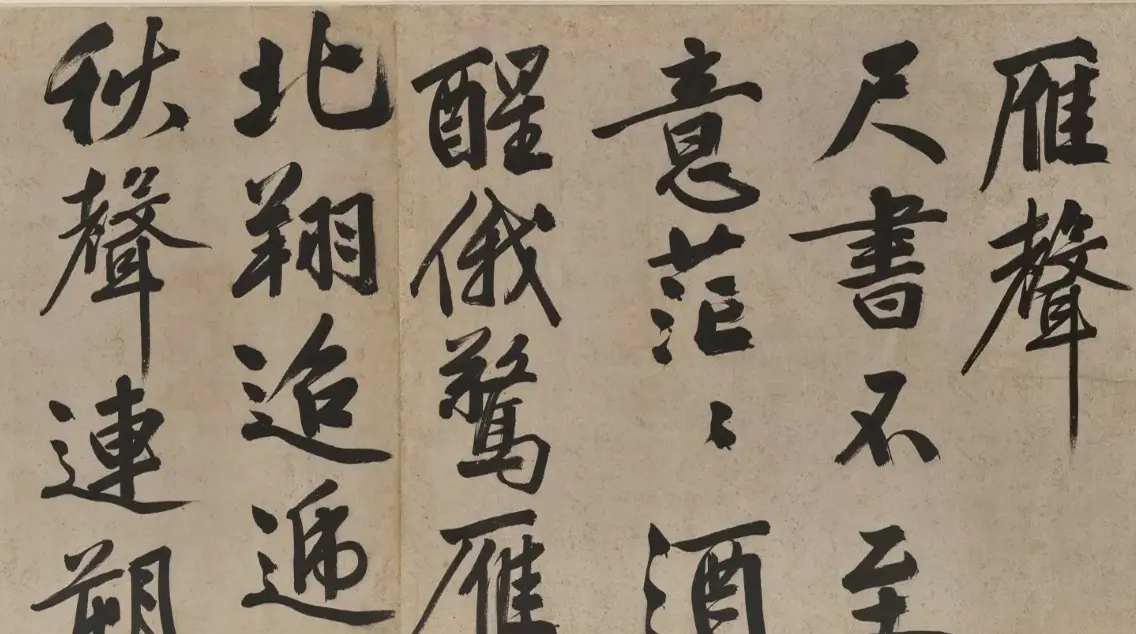 雁聲
尺書不至
意茫〻酒
醒俄驚雁
北翔迨遞
秋聲連朔